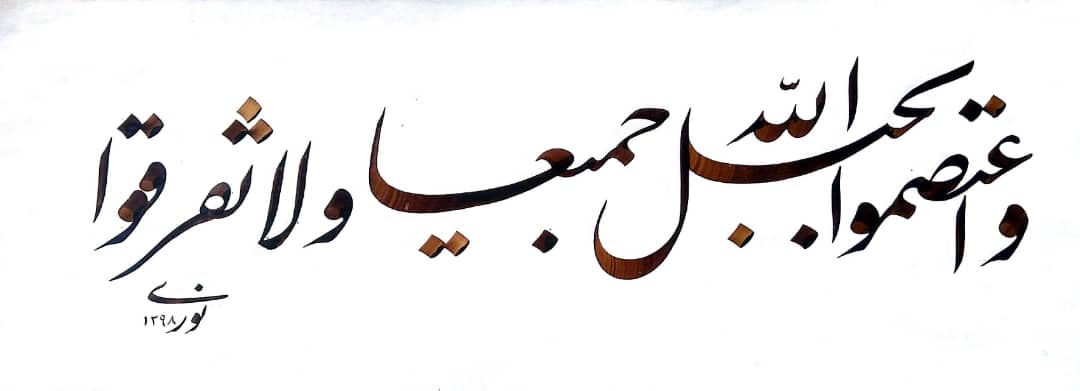 واعتصموا بحبل الله جمیعا ولا تفرقوا
نوری ۱۳۹۸